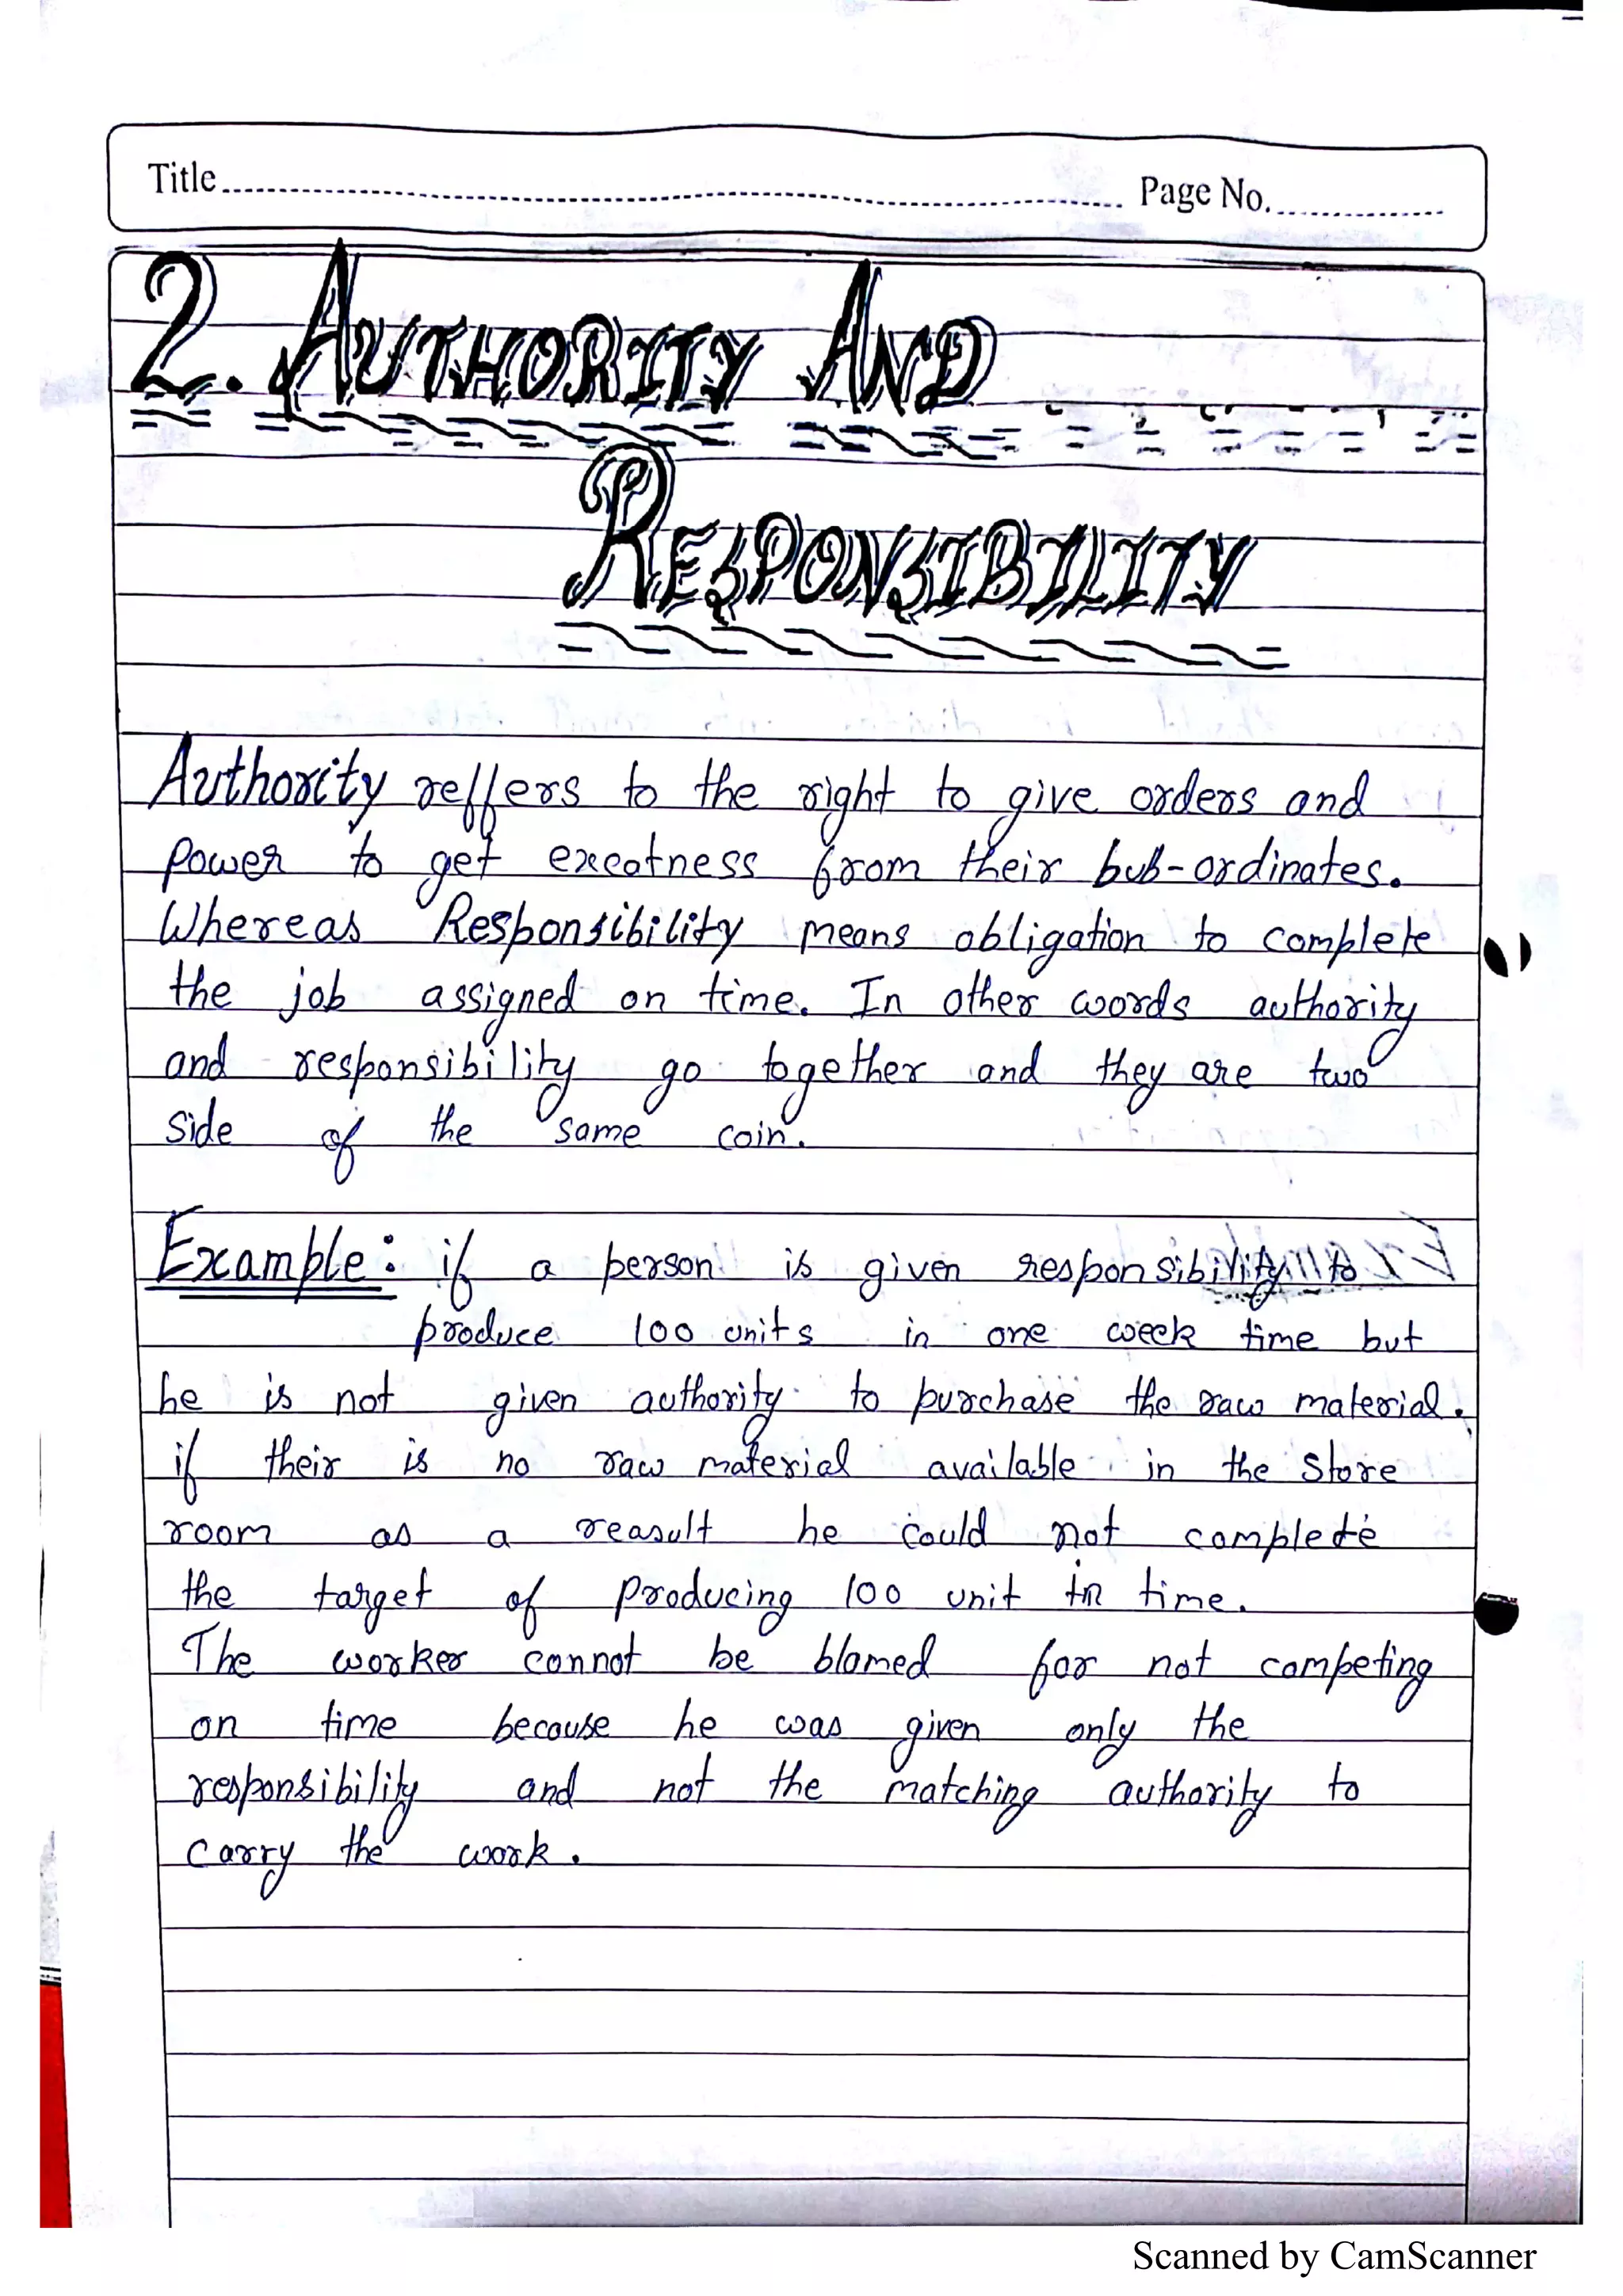 Title
Page No.
2. AUTHORITY AND
RESPONSIBILITY
Authority reffers to the right to give orders and
power to get execatness from their bub-ordinates.
Whereas Responsibility means obligation to complete
the job assigned on time. In other words authority
and responsibility go together and they are two
side of the same coin.
Example: if a person is given responsibility to
produce 100 units in one week time but
he is not given authority to purchase the raw material.
if their is no raw material available in the store
room as a reasult he could not complete
the target of producing 100 unit in time.
The worker cannot be blamed for not competing
on time because he was given only the
responsibility and not the matching authority to
carry the work.
Scanned by CamScanner